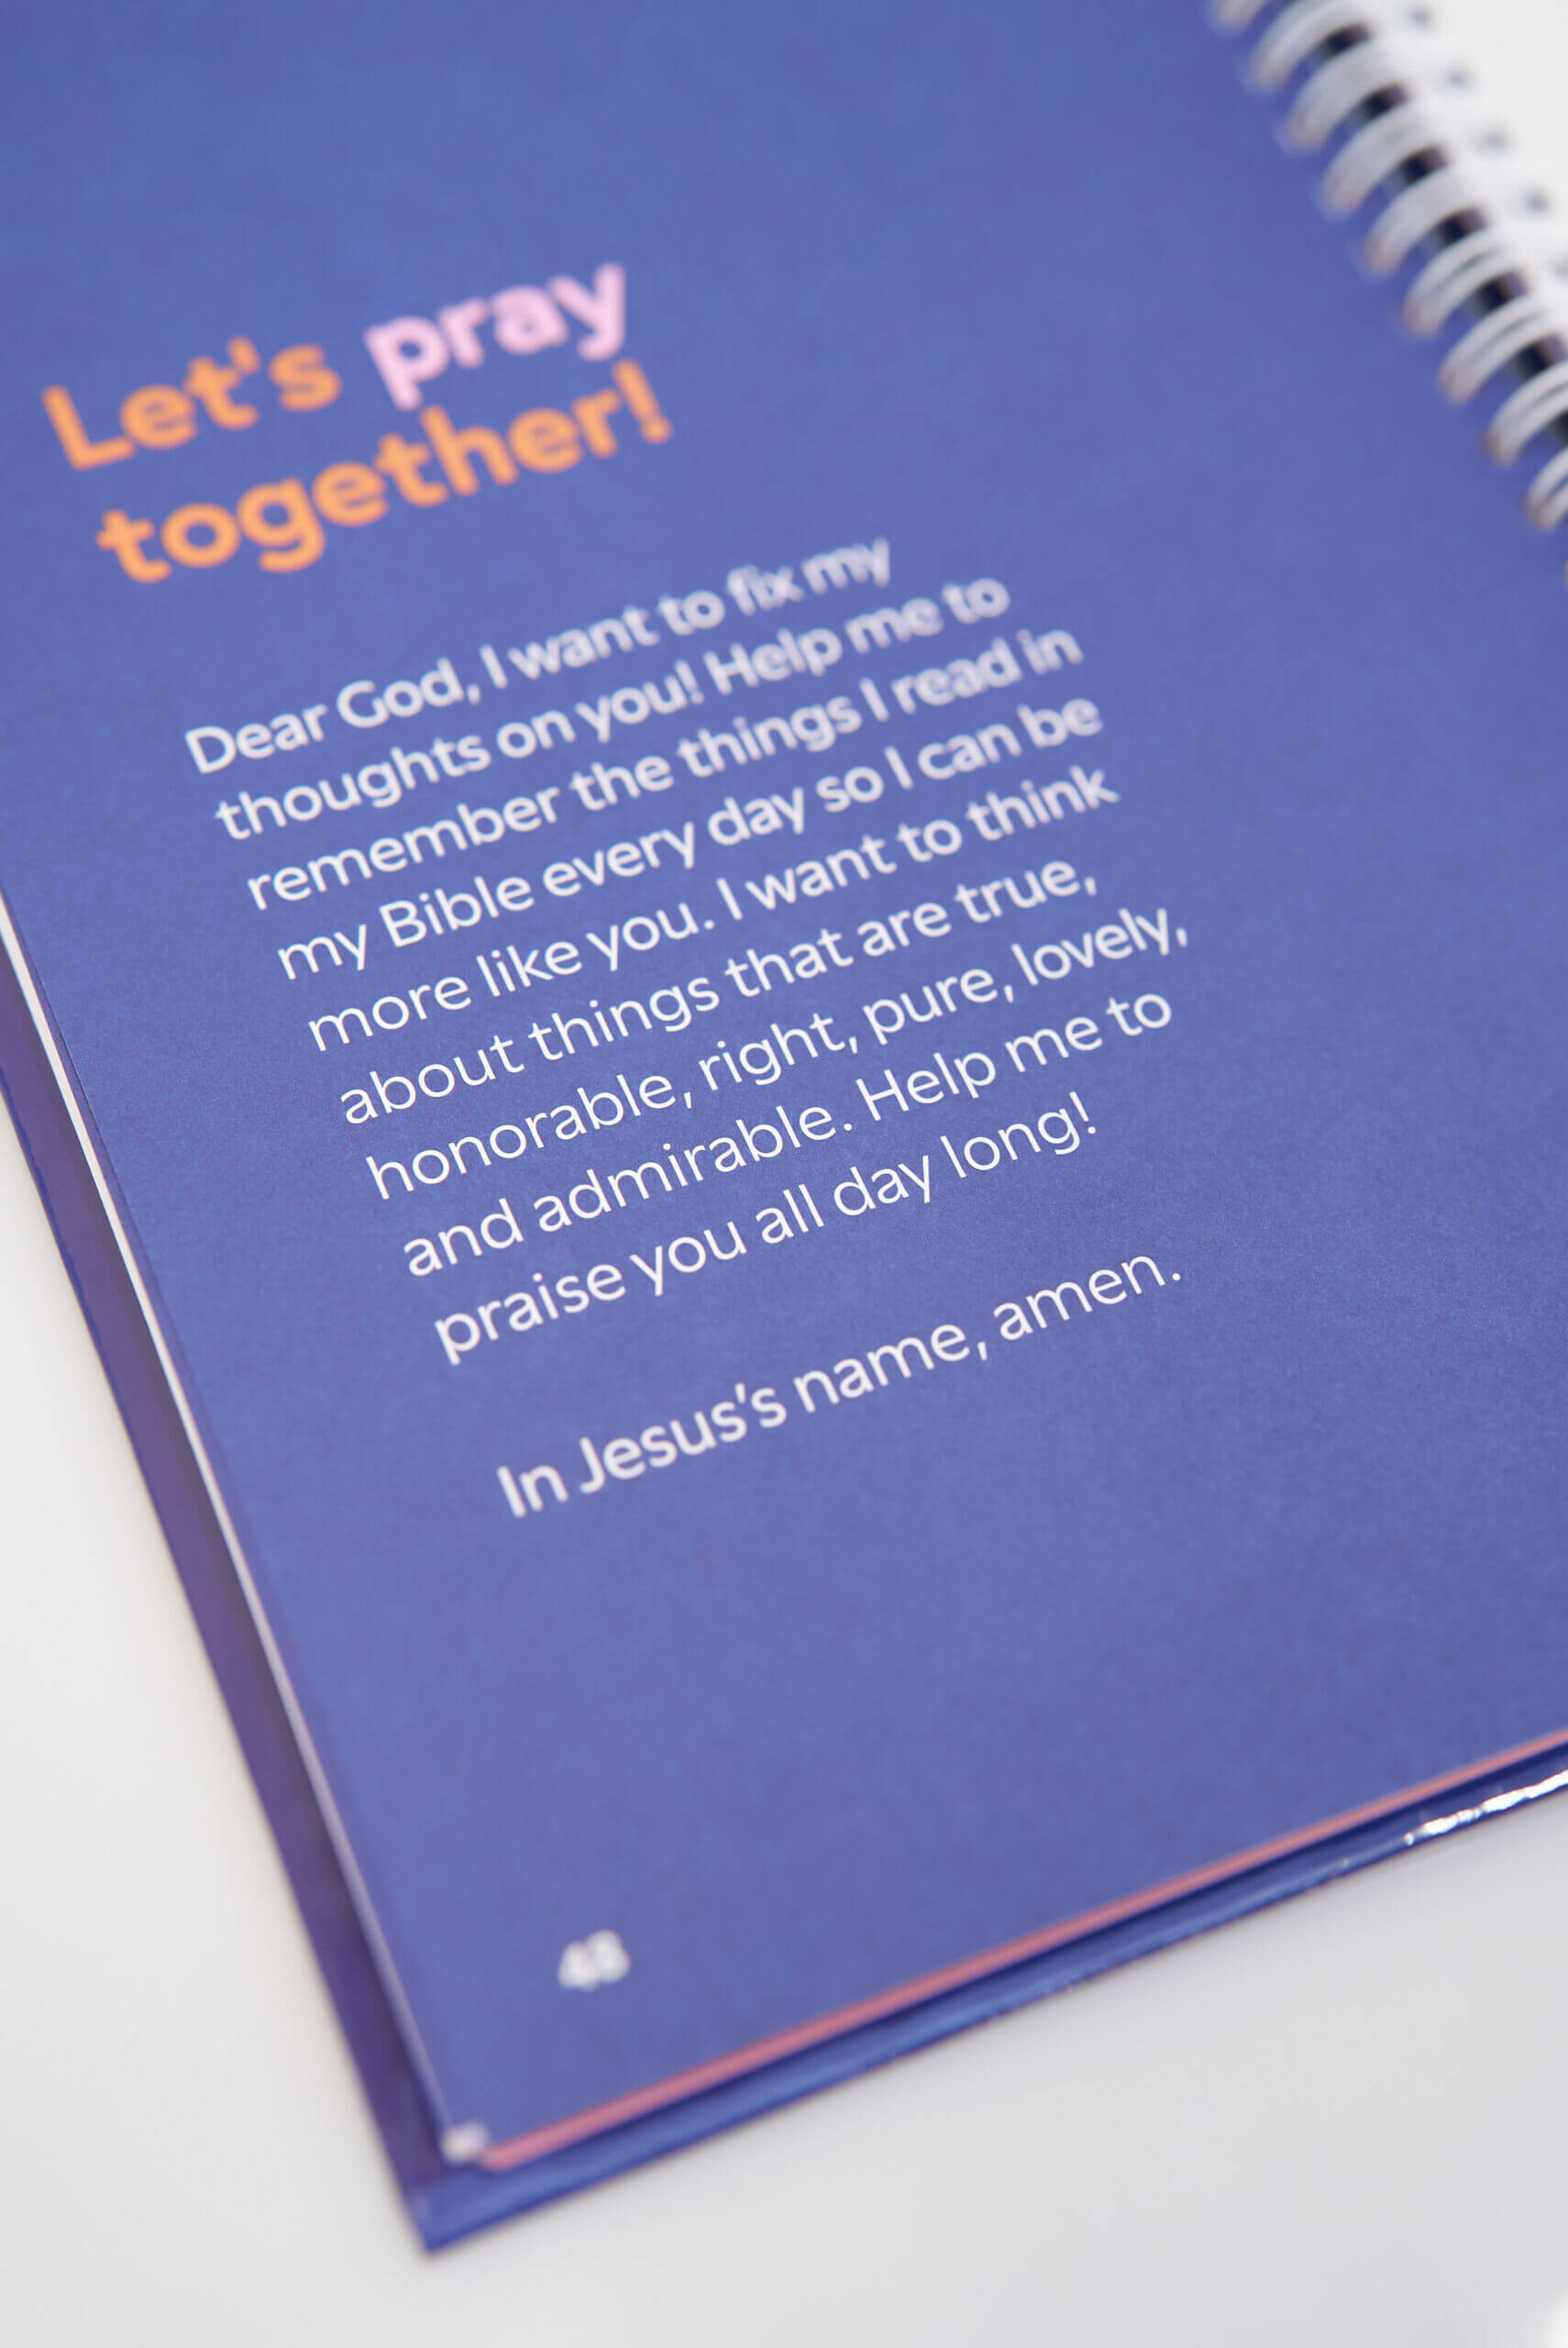 Let's pray
together!
Dear God, I want to fix my
thoughts on you! Help me to
remember the things I read in
my Bible every day so I can be
more like you. I want to think
about things that are true,
honorable, right, pure, lovely,
and admirable. Help me to
praise you all day long!
In Jesus's name, amen.
48